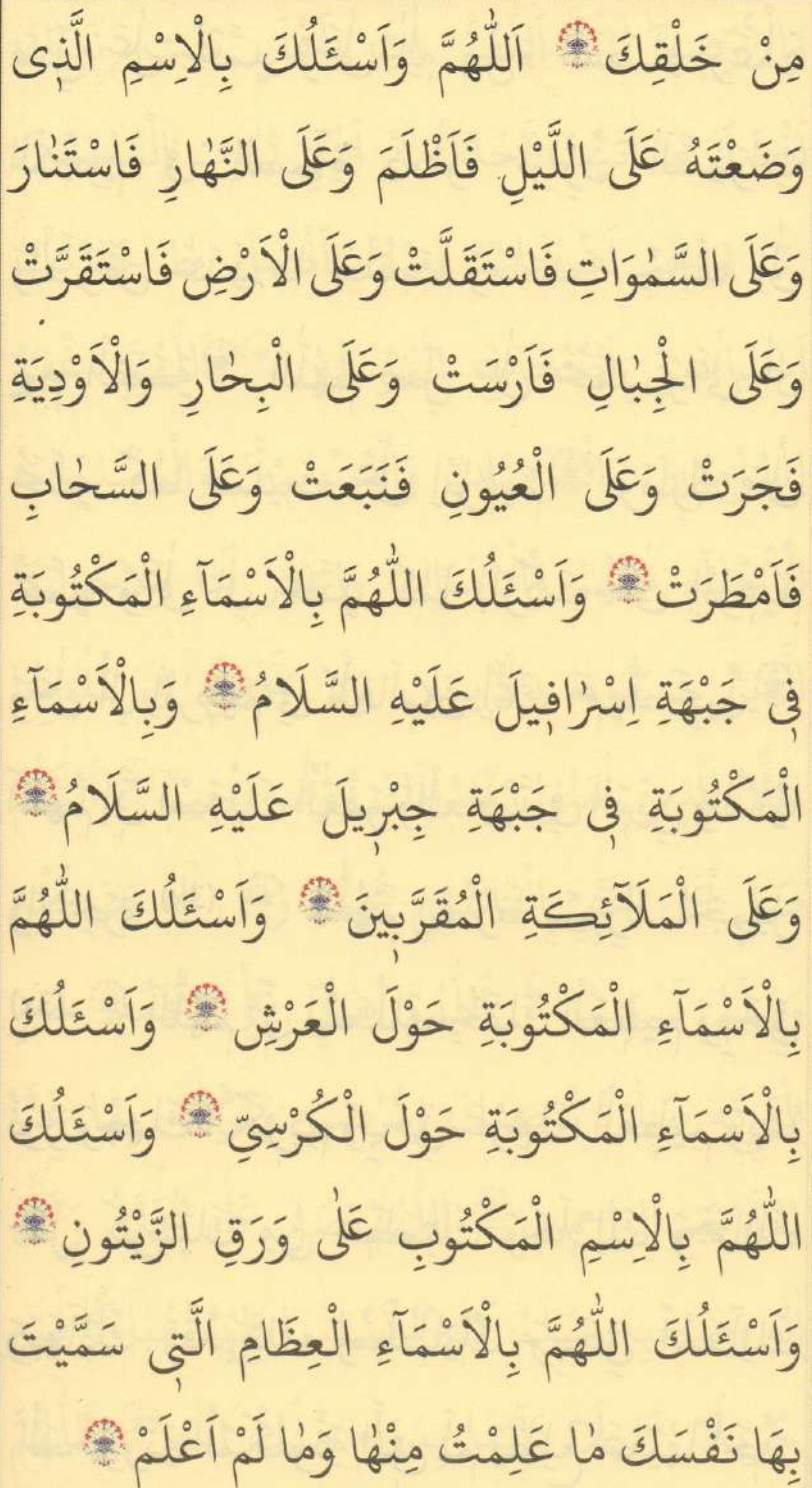 مِنْ خَلْقِكَ اَللّٰهُمَّ وَاَسْئَلُكَ بِالْاِسْمِ الَّذٖى
وَضَعْتَهُ عَلَى اللَّيْلِ فَاَظْلَمَ وَعَلَى النَّهٰارِ فَاسْتَنٰارَ
وَعَلَى السَّمٰوَاتِ فَاسْتَقَلَّتْ وَعَلَى الْاَرْضِ فَاسْتَقَرَّتْ
وَعَلَى الْجِبٰالِ فَاَرْسَتْ وَعَلَى الْبِحٰارِ وَالْاَوْدِيَةِ
فَجَرَتْ وَعَلَى الْعُيُونِ فَنَبَعَتْ وَعَلَى السَّحٰابِ
فَاَمْطَرَتْ وَاَسْئَلُكَ اللّٰهُمَّ بِالْاَسْمَآءِ الْمَكْتُوبَةِ
فٖى جَبْهَةِ اِسْرٰافٖيلَ عَلَيْهِ السَّلَامُ وَبِالْاَسْمَآءِ
الْمَكْتُوبَةِ فٖى جَبْهَةِ جِبْرٖيلَ عَلَيْهِ السَّلَامُ
وَعَلَى الْمَلَآئِكَةِ الْمُقَرَّبٖينَ وَاَسْئَلُكَ اللّٰهُمَّ
بِالْاَسْمَآءِ الْمَكْتُوبَةِ حَوْلَ الْعَرْشِ وَاَسْئَلُكَ
بِالْاَسْمَآءِ الْمَكْتُوبَةِ حَوْلَ الْكُرْسِىِّ وَاَسْئَلُكَ
اللّٰهُمَّ بِالْاِسْمِ الْمَكْتُوبِ عَلٰى وَرَقِ الزَّيْتُونِ
وَاَسْئَلُكَ اللّٰهُمَّ بِالْاَسْمَآءِ الْعِظَامِ الَّتٖى سَمَّيْتَ
بِهَا نَفْسَكَ مٰا عَلِمْتُ مِنْهٰا وَمٰا لَمْ اَعْلَمْ